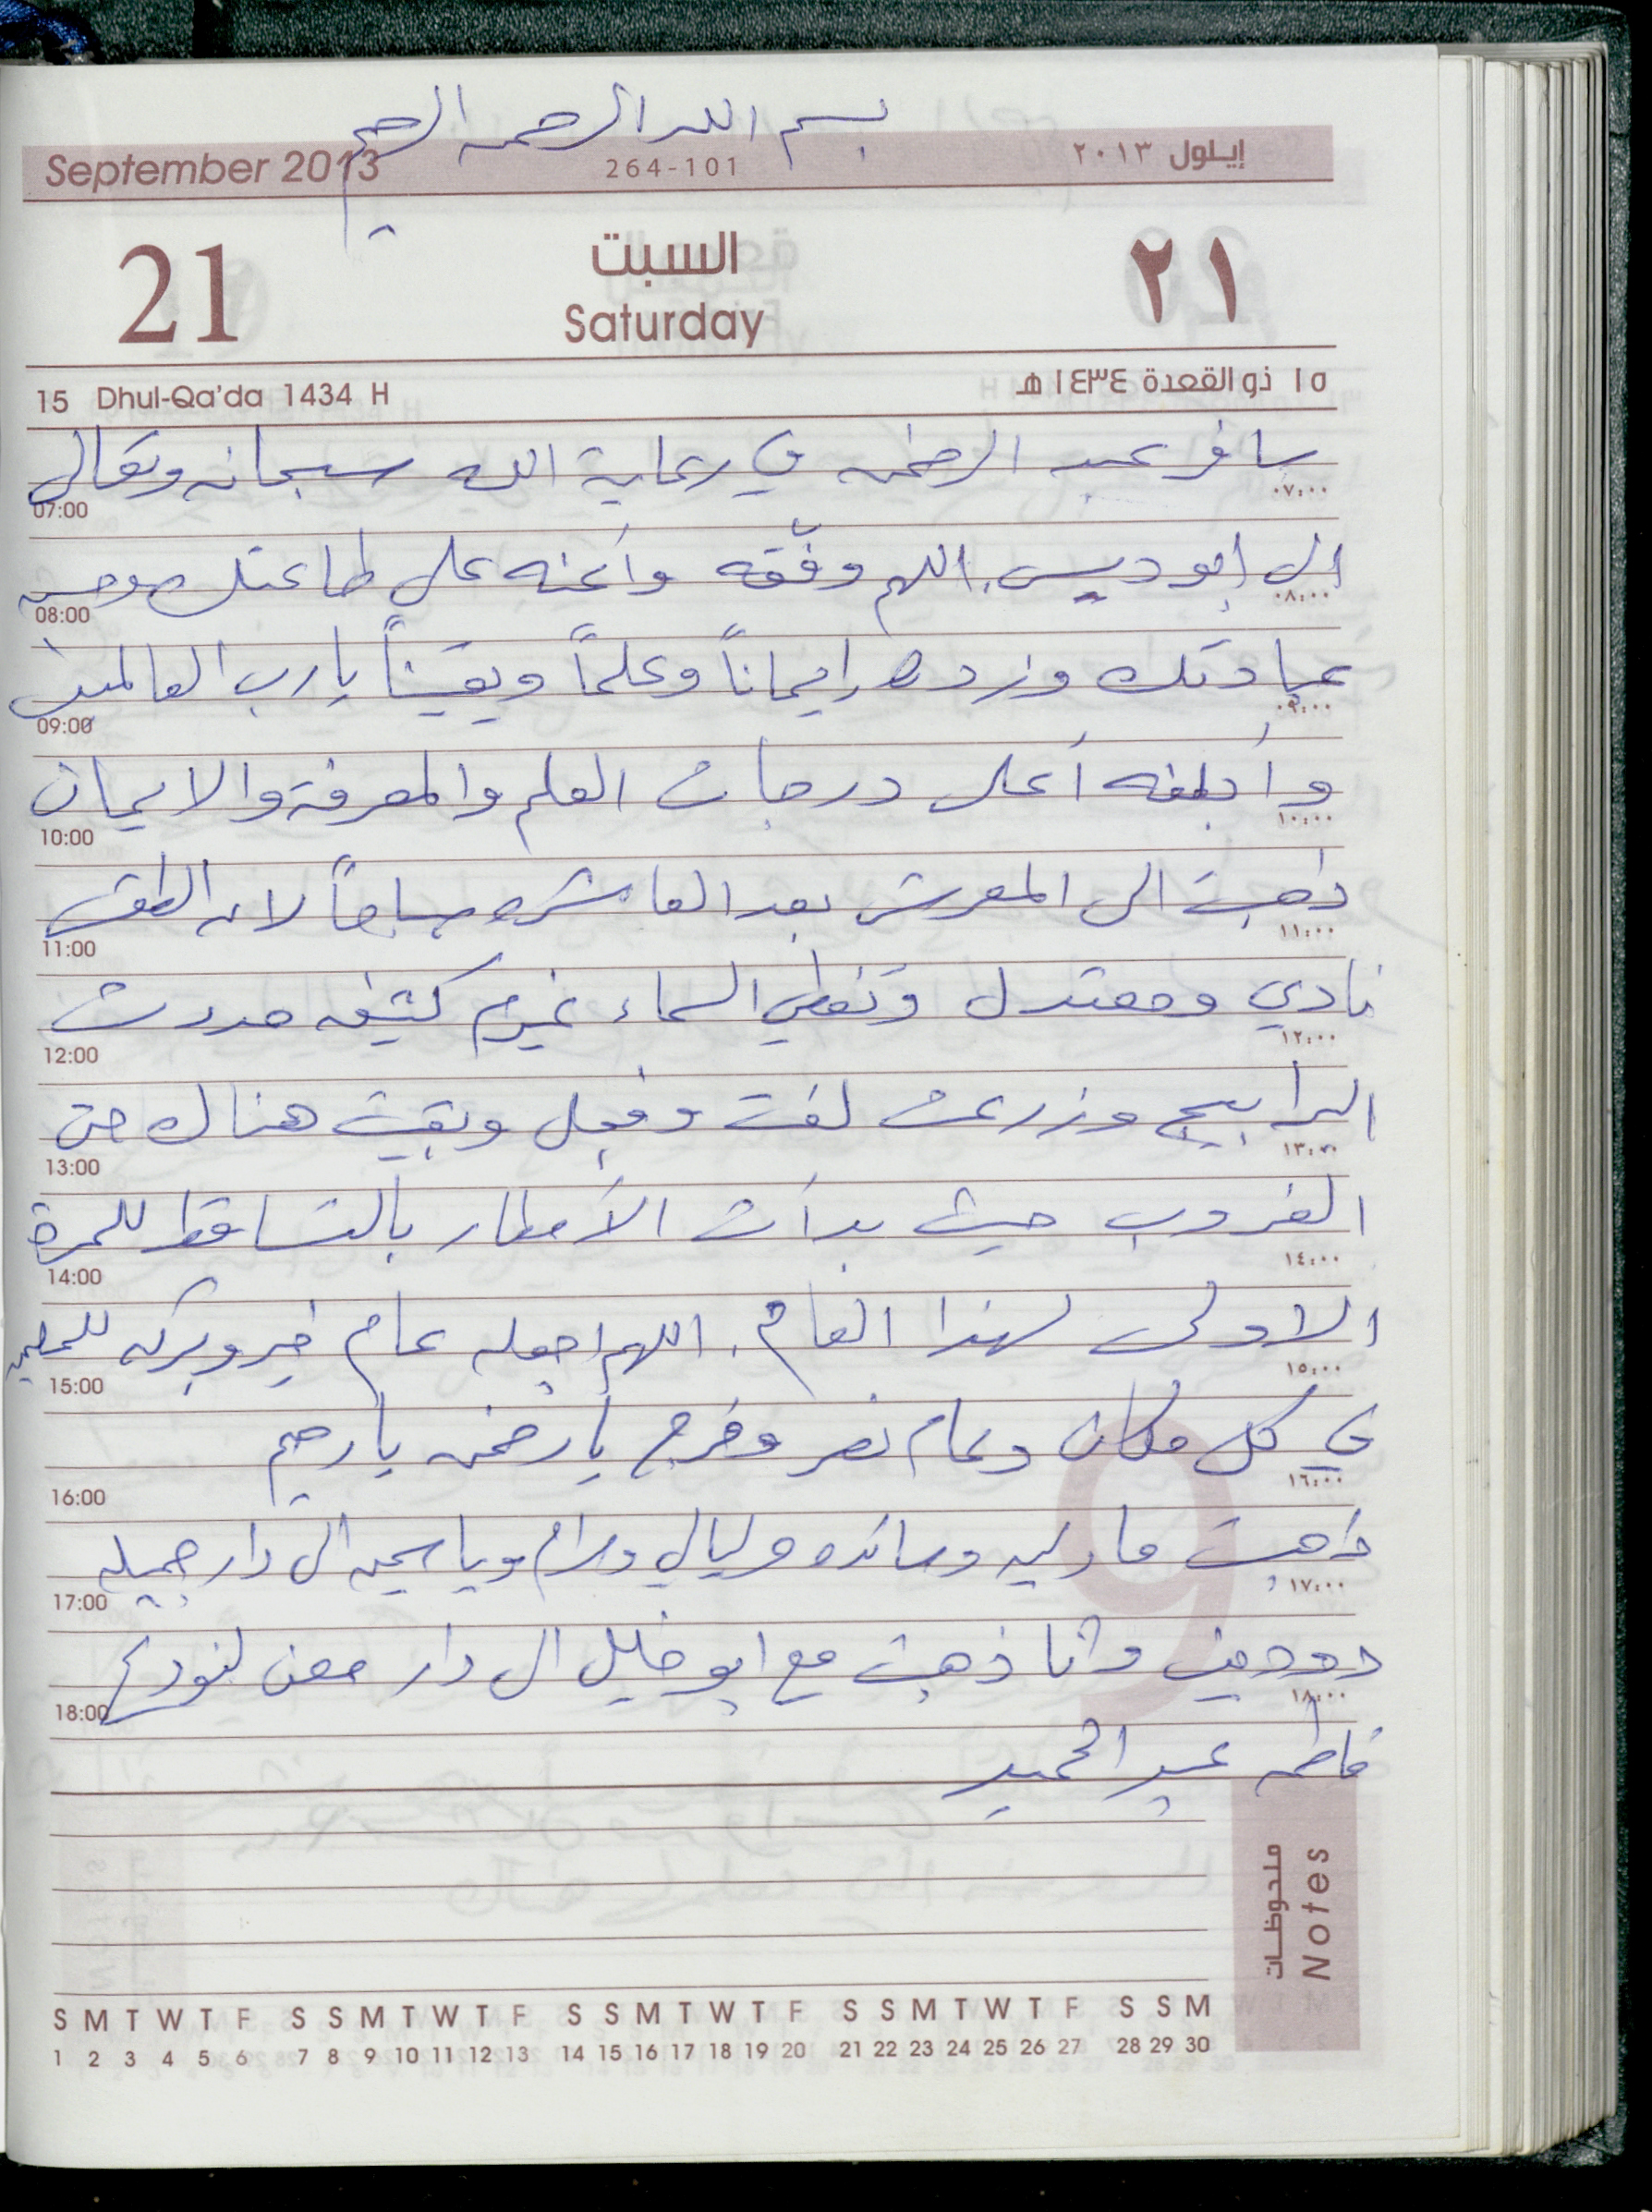 بسم الله الرحمن الرحيم
September 2013 264-101 إيلول ٢٠١٣
21 السبت ٢١
Saturday
15 Dhul-Qa'da 1434 H ١٥ ذو القعدة ١٤٣٤ هـ
سافر عبد الرحمن في رعاية الله سبحانه وتعالى
07:00 ٠٧:٠٠
الى ابوديس. اللهم وفّقه وأعنه على طاعتك وحسن
08:00 ٠٨:٠٠
عبادتك وزده إيماناً وعلماً ويقيناً يا رب العالمين
09:00 ٠٩:٠٠
وأبلغه أعلى درجات العلم والمعرفة والايمان
10:00 ١٠:٠٠
ذهبت الى المعرش بعد العاشره صباحاً لان الطقس
11:00 ١١:٠٠
نادي ومعتدل وتغطي السماء غيوم كثيفه مددت
12:00 ١٢:٠٠
البرابيج وزرعت لفت وفجل وبقيت هناك حتى
13:00 ١٣:٠٠
الغروب حيث بدأت الأمطار بالتساقط للمرة
14:00 ١٤:٠٠
الاولى لهذا العام. اللهم اجعله عام خير وبركه للمسلمين
15:00 ١٥:٠٠
في كل مكان وعام نصر وفرج يا رحمن يا رحيم
16:00 ١٦:٠٠
ذهبت وسائده وليالي ومرام وياسمين الى دار جميله
17:00 ١٧:٠٠
دودين وانا ذهبت مع ابو خليل الى دار معن لنودع
18:00 ١٨:٠٠
فاطمه عبد الحميد
ملحوظات
Notes
S M T W T F S S M T W T F S S M T W T F S S M T W T F S S M
1 2 3 4 5 6 7 8 9 10 11 12 13 14 15 16 17 18 19 20 21 22 23 24 25 26 27 28 29 30